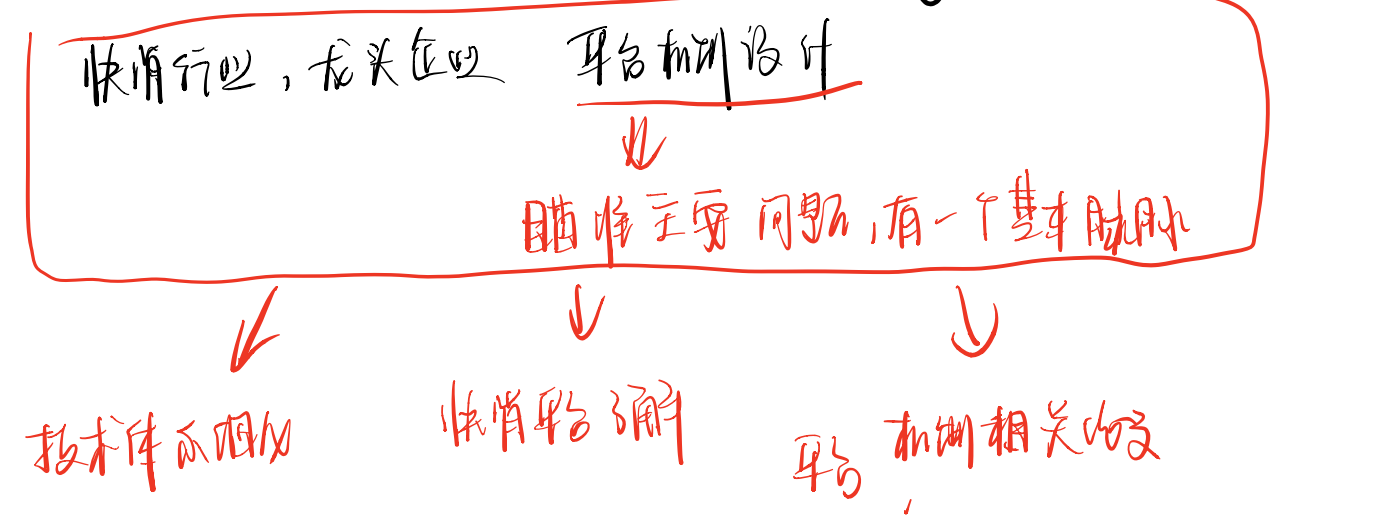 快消行业，龙头企业 平台机制设计
瞄准主要问题，有一个基本脉脉
技术体系
快消平台了解
平台 机制相关论文